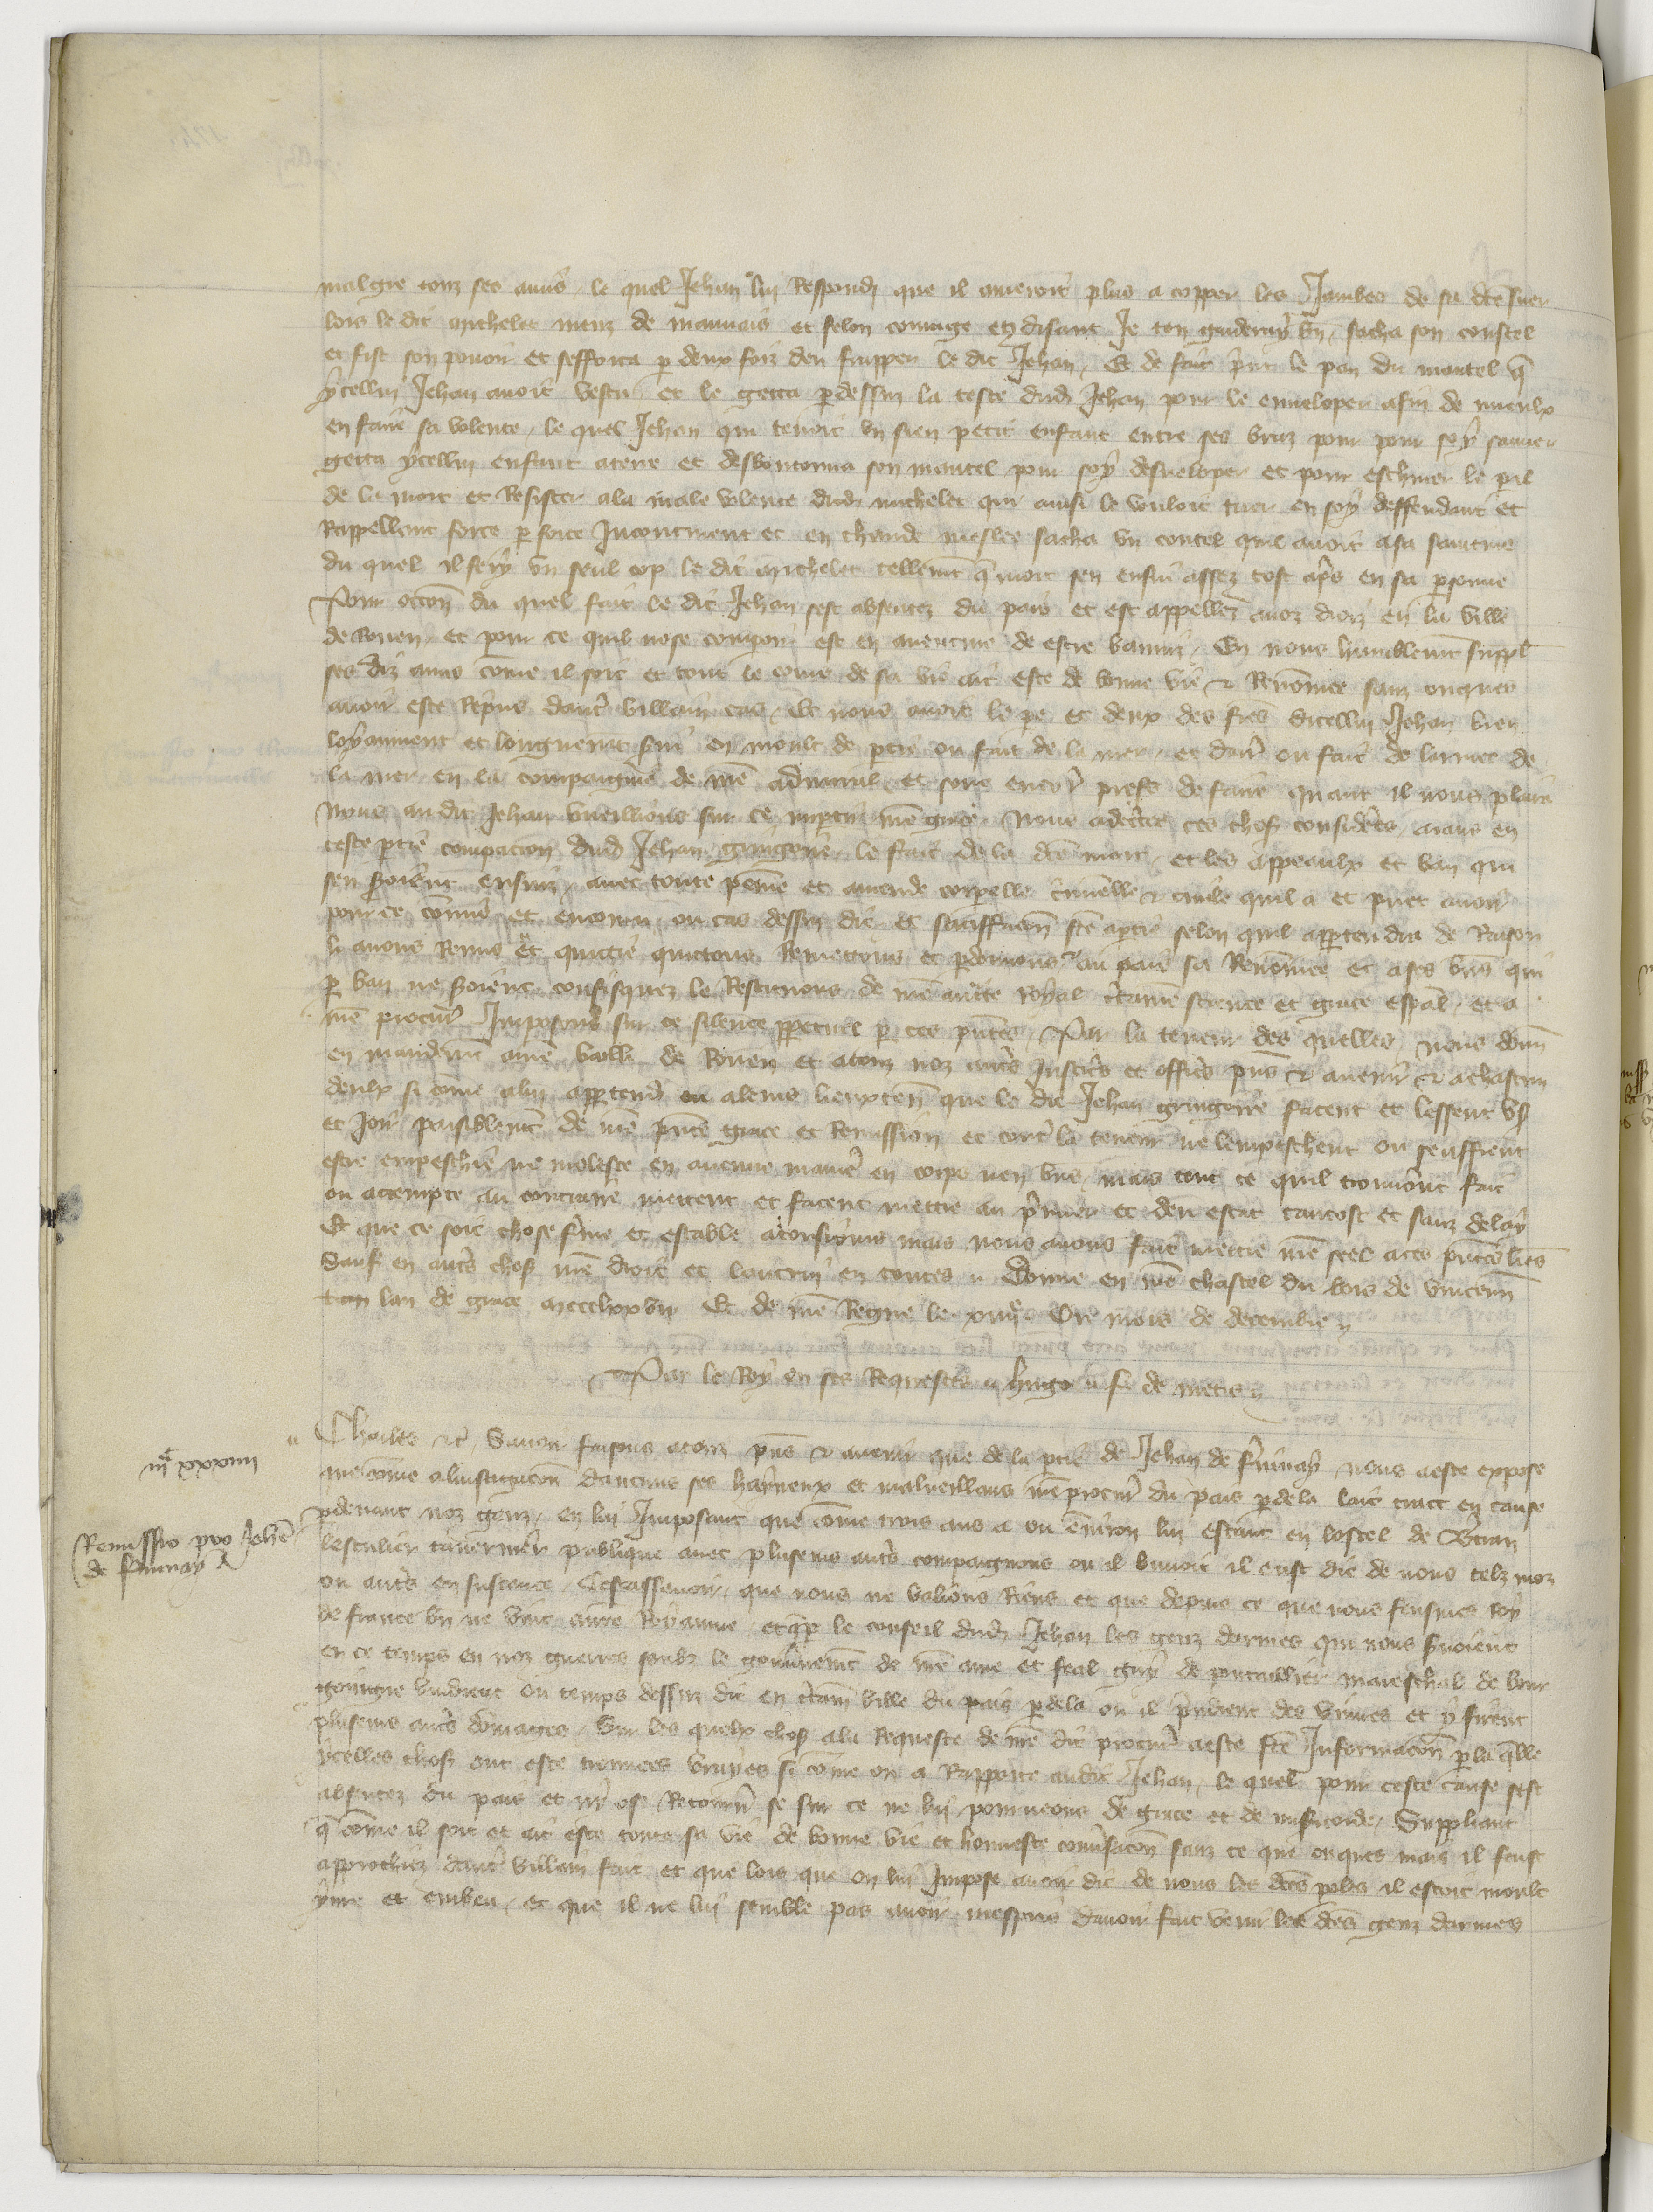 malgre touz ses amis le quel Jehan lui Respondi que il ameroit plus a copper les Jambes de sa dce suer
lors le dit michelet meuz de mauvais et felon courage en disant Je ten garderay bn sacha son coustel
et fist son pouoir et sefforca p deux foiz den frapper le dit Jehan Et de fait prit le pan du mantel q
ycellui Jehan avoit vestu et le getta pdessuz la teste dud Jehan pour le enveloper afin de mieulx
en faire sa volente le quel Jehan qui tenoit un sien petit enfant entre ses braz pour pour soy sauver
getta ycellui enfant aterre et desboutonna son mantel pour soy desveloper et pour eschiver le pil
de la mort et Resister ala male volente dud michelet qui ainsi le vouloit tuer en soy deffendant et
Rappellant force p force Incontinent et en chaude meslee sacha un coutel quil avoit asa sainture
du quel il fery un seul cop le dit michelet tellemt q mort sen ensui assez tost aps en sa psonne
Pour occon du quel fait le dit Jehan sest absentez du pais et est appellez avoz droiz en la ville
de Rouen et pour ce quil nose compoir est en aventure de estre banniz En nous humblemt suppl
ses diz amis come il soit et tout le cours de sa vie ait este de bonne vie & Renommee sanz onques
avoir este Repris dautre villain cas Et nous avoit le pe et deux des fres dicellui Jehan bien
loyaument et longuemt servi en moult de pties ou fait de la mer et daut ou fait de larmee de
la mer en la compaignie de nre admiral et sont encor prests de faire quant il nous plaira
Nous audit Jehan vueillions sur ce impartir nre grace Nous adecertes ces choses considerees aians en
ceste partie compacion dud Jehan gringoire le fait de la dce mort et les appeaulx et ban qui
sen seroient ensuiz avec toute peine et amende corpelle criminelle & civile quil a et puet avoir
pour ce commis et encouru ou cas dessuz dit et satiffacon fce aptie selon quil appartendra de Raison
li avons Remis et quictie quictons Remettons et pdonnons au pais sa Renommee et ases biens qui
p ban ne seroient confisquez le Restituons de nre aucte Royal certaine science et grace espal et a
nre procur Imposons sur ce silence ppetuel p ces pntes Par la teneur des quelles nous donn
en mandemt anre bailli de Rouen et atouz noz autres Justiciers et officiers pns & avenir & achascun
deulx si come alui appartendra ou aleurs lieuxten que le dit Jehan gringoire facent et lessent user
et Joir paisiblemt de nre pnte grace et Remission et contre la teneur ne lempeschent ou seuffrent
estre empeschie ne moleste en aucune maniere en corps nen biens mais tout ce quil trouveront fait
ou attempte au contraire mettent et facent mettre au premier et deu estat tantost et sanz delay
Et que ce soit chose ferme et estable atousiours mais nous avons fait mettre nre seel aces pntes lres
Sauf en autres choses nre droit et lautrui en toutes Donne en nre chastel du bois de vincenn
lan de grace mccclxxvii Et de nre Regne le xiiiie Ou mois de decembre
Par le Roy en ses Requestes Hugo f de metis
Charles &c Savoir faisons atouz pns & avenir que de la ptie de Jehan de finay nous aeste expose
que come alinstigacon daucuns ses hayneux et malveillans nre procur du pais pdela lait trait en cause
pdevant noz genz en lui Imposant que come trois ans a ou environ lui estant en lostel de
lesculier tavernier publique avec pluseurs autres compaignons ou il buvoit il eust dit de nous telz moz
ou autres en sustence Cest assavoir que nous ne valions Riens et que depuis ce que nous feusmes Roy
de france bn ne vint aure Royaume et que p le conseil dud Jehan les genz darmes qui nous servoient
en ce temps en noz guerres souz le gouvernemt de nre ame et feal guy de pontallier mareschal de bour
goingne vindrent ou temps dessuz dit en certaine ville du pais pdela ou il prindrent des vivres et y firent
pluseurs autres dommages Sur les quelx choses ala Requeste de nre dit procur aeste fce Informacon p la qlle
ycelles choses ont este trouvees vrayes si come on a Rapporte audit Jehan le quel pour ceste cause sest
absentez du pais et ni ose Retourner se sur ce ne lui pourveons de grace et de misericorde Suppliant
q come il soit et ait este toute sa vie de bonne vie et honneste conversacon sanz ce que onques mais il feust
approchiez dautre villain fait et que lors que on lui Impose avoir dit de nous les dces poles il estoit moult
yvre et embeu et que il ne lui semble pas avoir mespris davoir fait venir les dces genz darmes
iiic xxxiiii
Remissio pro Johe
de finay